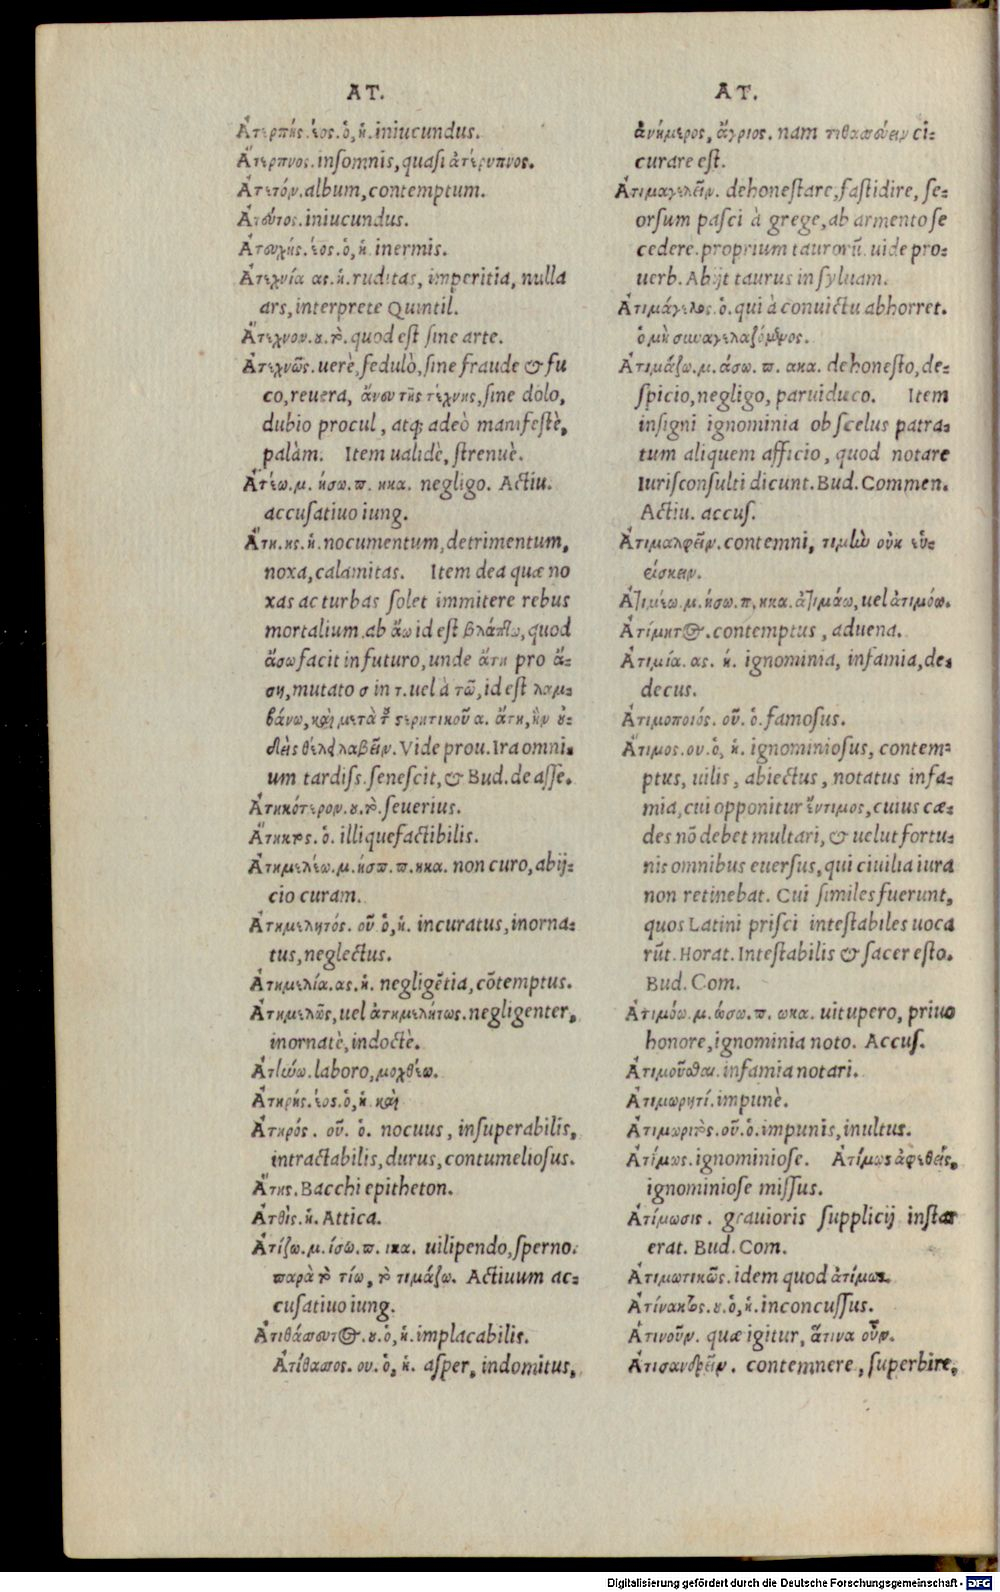 AT.
Ἀτερπής. έος. ὁ, ἡ. iniucundus.
Ἄτερπνος. inſomnis, quaſi ἀτέρυπνος.
Ἀτετόν. album, contemptum.
Ἄτευτος. iniucundus.
Ἀτευχής. έος. ὁ, ἡ inermis.
Ἀτεχνία ας. ἡ. ruditas, imperitia, nulla
ars, interprete Quintil.
Ἄτεχνον. ου. τὸ. quod eſt ſine arte.
Ἀτεχνῶς. uerè, ſedulò, ſine fraude & fu
co, reuera, ἄνευ τῆς τέχνης, ſine dolo,
dubio procul, atq; adeò manifeſtè,
palàm. Item ualidè, ſtrenuè.
Ἀτέω. μ. ήσω. π. ηκα. negligo. Actiu.
accuſatiuo iung.
Ἄτη. ης. ἡ. nocumentum, detrimentum,
noxa, calamitas. Item dea quæ no
xas ac turbas ſolet immitere rebus
mortalium. ab ἄω id eſt βλάπτω, quod
ἄσω facit in futuro, unde ἄτη pro ἄ-
ση, mutato σ in τ. uel à τῶ, id eſt λαμ-
βάνω, καὶ μετὰ τ͂ στερητικοῦ α. ἄτη, ἣν οὐ-
δεὶς θέλει λαβεῖν. Vide prou. Ira omni-
um tardiſs. ſeneſcit, & Bud. de aſſe.
Ἀτηκότερον. ου. τὸ. ſeuerius.
Ἄτηκτος. ὁ. illiquefactibilis.
Ἀτημελέω. μ. ήσω. π. ηκα. non curo, abij-
cio curam.
Ἀτημελητός. οῦ ὁ, ἡ. incuratus, inorna-
tus, neglectus.
Ἀτημελία. ας. ἡ. negligẽtia, cõtemptus.
Ἀτημελῶς, uel ἀτημελήτως. negligenter,
inornatè, indoctè.
Ἀτηνύω. laboro, μοχθέω.
Ἀτηρής. έος. ὁ, ἡ καὶ
Ἀτηρός. οῦ. ὁ. nocuus, inſuperabilis,
intractabilis, durus, contumelioſus.
Ἄτης. Bacchi epitheton.
Ἀτθὶς. ἡ. Attica.
Ἀτίζω. μ. ίσω. π. ικα. uilipendo, ſperno.
παρὰ τὸ τίω, τὸ τιμάζω. Actiuum ac-
cuſatiuo iung.
Ἀτιθάσευτος. ου. ὁ, ἡ. implacabilis.
Ἀτίθασος. ου. ὁ, ἡ. aſper, indomitus,
AT.
ἀνήμερος, ἄγριος. nam τιθασεύειν ci-
curare eſt.
Ἀτιμαγελεῖν. dehoneſtare, faſtidire, ſe-
orſum paſci à grege, ab armento ſe
cedere. proprium taurorũ. uide pro-
uerb. Abijt taurus in ſyluam.
Ἀτιμάγελος. ὁ. qui à conuictu abhorret.
ὁ μὴ συναγελαζόμενος.
Ἀτιμάζω. μ. άσω. π. ακα. dehoneſto, de-
ſpicio, negligo, paruiduco. Item
inſigni ignominia ob ſcelus patra-
tum aliquem afficio, quod notare
Iuriſconſulti dicunt. Bud. Commen.
Actiu. accuſ.
Ἀτιμαλφεῖν. contemni, τιμὴν οὐκ εὑ-
ρίσκειν.
Ἀτιμέω. μ. ήσω. π, ηκα. ἀτιμάω, uel ἀτιμόω.
Ἀτίμητος. contemptus, aduena.
Ἀτιμία. ας. ἡ. ignominia, infamia, de-
decus.
Ἀτιμοποιός. οῦ. ὁ. famoſus.
Ἄτιμος. ου. ὁ, ἡ. ignominioſus, contem-
ptus, uilis, abiectus, notatus infa-
mia, cui opponitur ἔντιμος, cuius cæ-
des nõ debet multari, & uelut fortu-
nis omnibus euerſus, qui ciuilia iura
non retinebat. Cui ſimiles fuerunt,
quos Latini priſci inteſtabiles uoca
rũt. Horat. Inteſtabilis & ſacer eſto.
Bud. Com.
Ἀτιμόω. μ. ώσω. π. ωκα. uitupero, priuo
honore, ignominia noto. Accuſ.
Ἀτιμοῦσθαι. infamia notari.
Ἀτιμωρητί. impunè.
Ἀτιμωριτὸς. οῦ. ὁ. impunis, inultus.
Ἀτίμως. ignominioſe. Ἀτίμως ἀφεθείς,
ignominioſe miſſus.
Ἀτίμωσις. grauioris ſupplicij inſtar
erat. Bud. Com.
Ἀτιμωτικῶς. idem quod ἀτίμως.
Ἀτίνακτος. ου. ὁ, ἡ. inconcuſſus.
Ἀτινοῦν. quæ igitur, ἅτινα οὖν.
Ἀτισανδρεῖν. contemnere, ſuperbire,
Digitalisierung gefördert durch die Deutsche Forschungsgemeinschaft - DFG